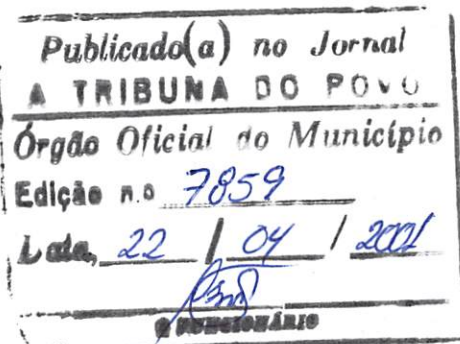 Publicado(a) no Jornal
A TRIBUNA DO POVO
Órgão Oficial do Município
Edição n.o 7859
Data, 22 / 04 / 2001
O FUNCIONÁRIO